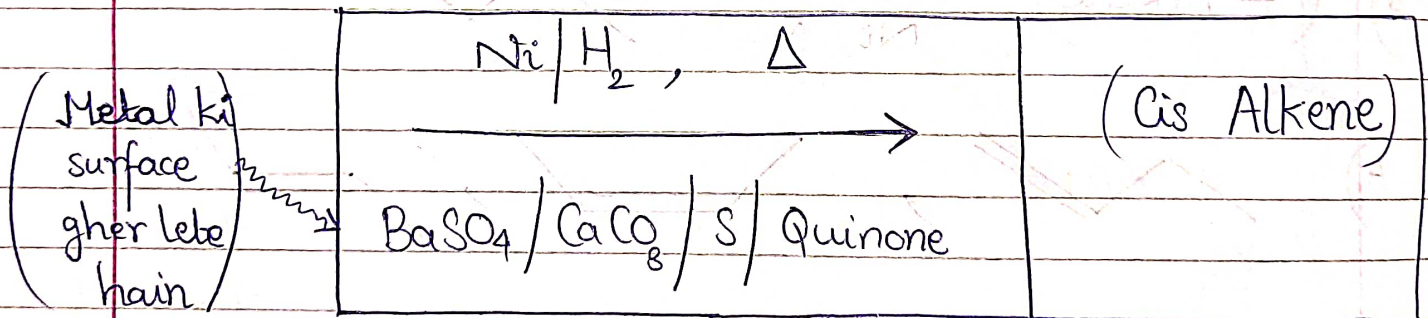 Ni/H₂, Δ
(Metal ki
surface
gher lete
hain)
BaSO₄/CaCO₃/S/Quinone
(Cis Alkene)